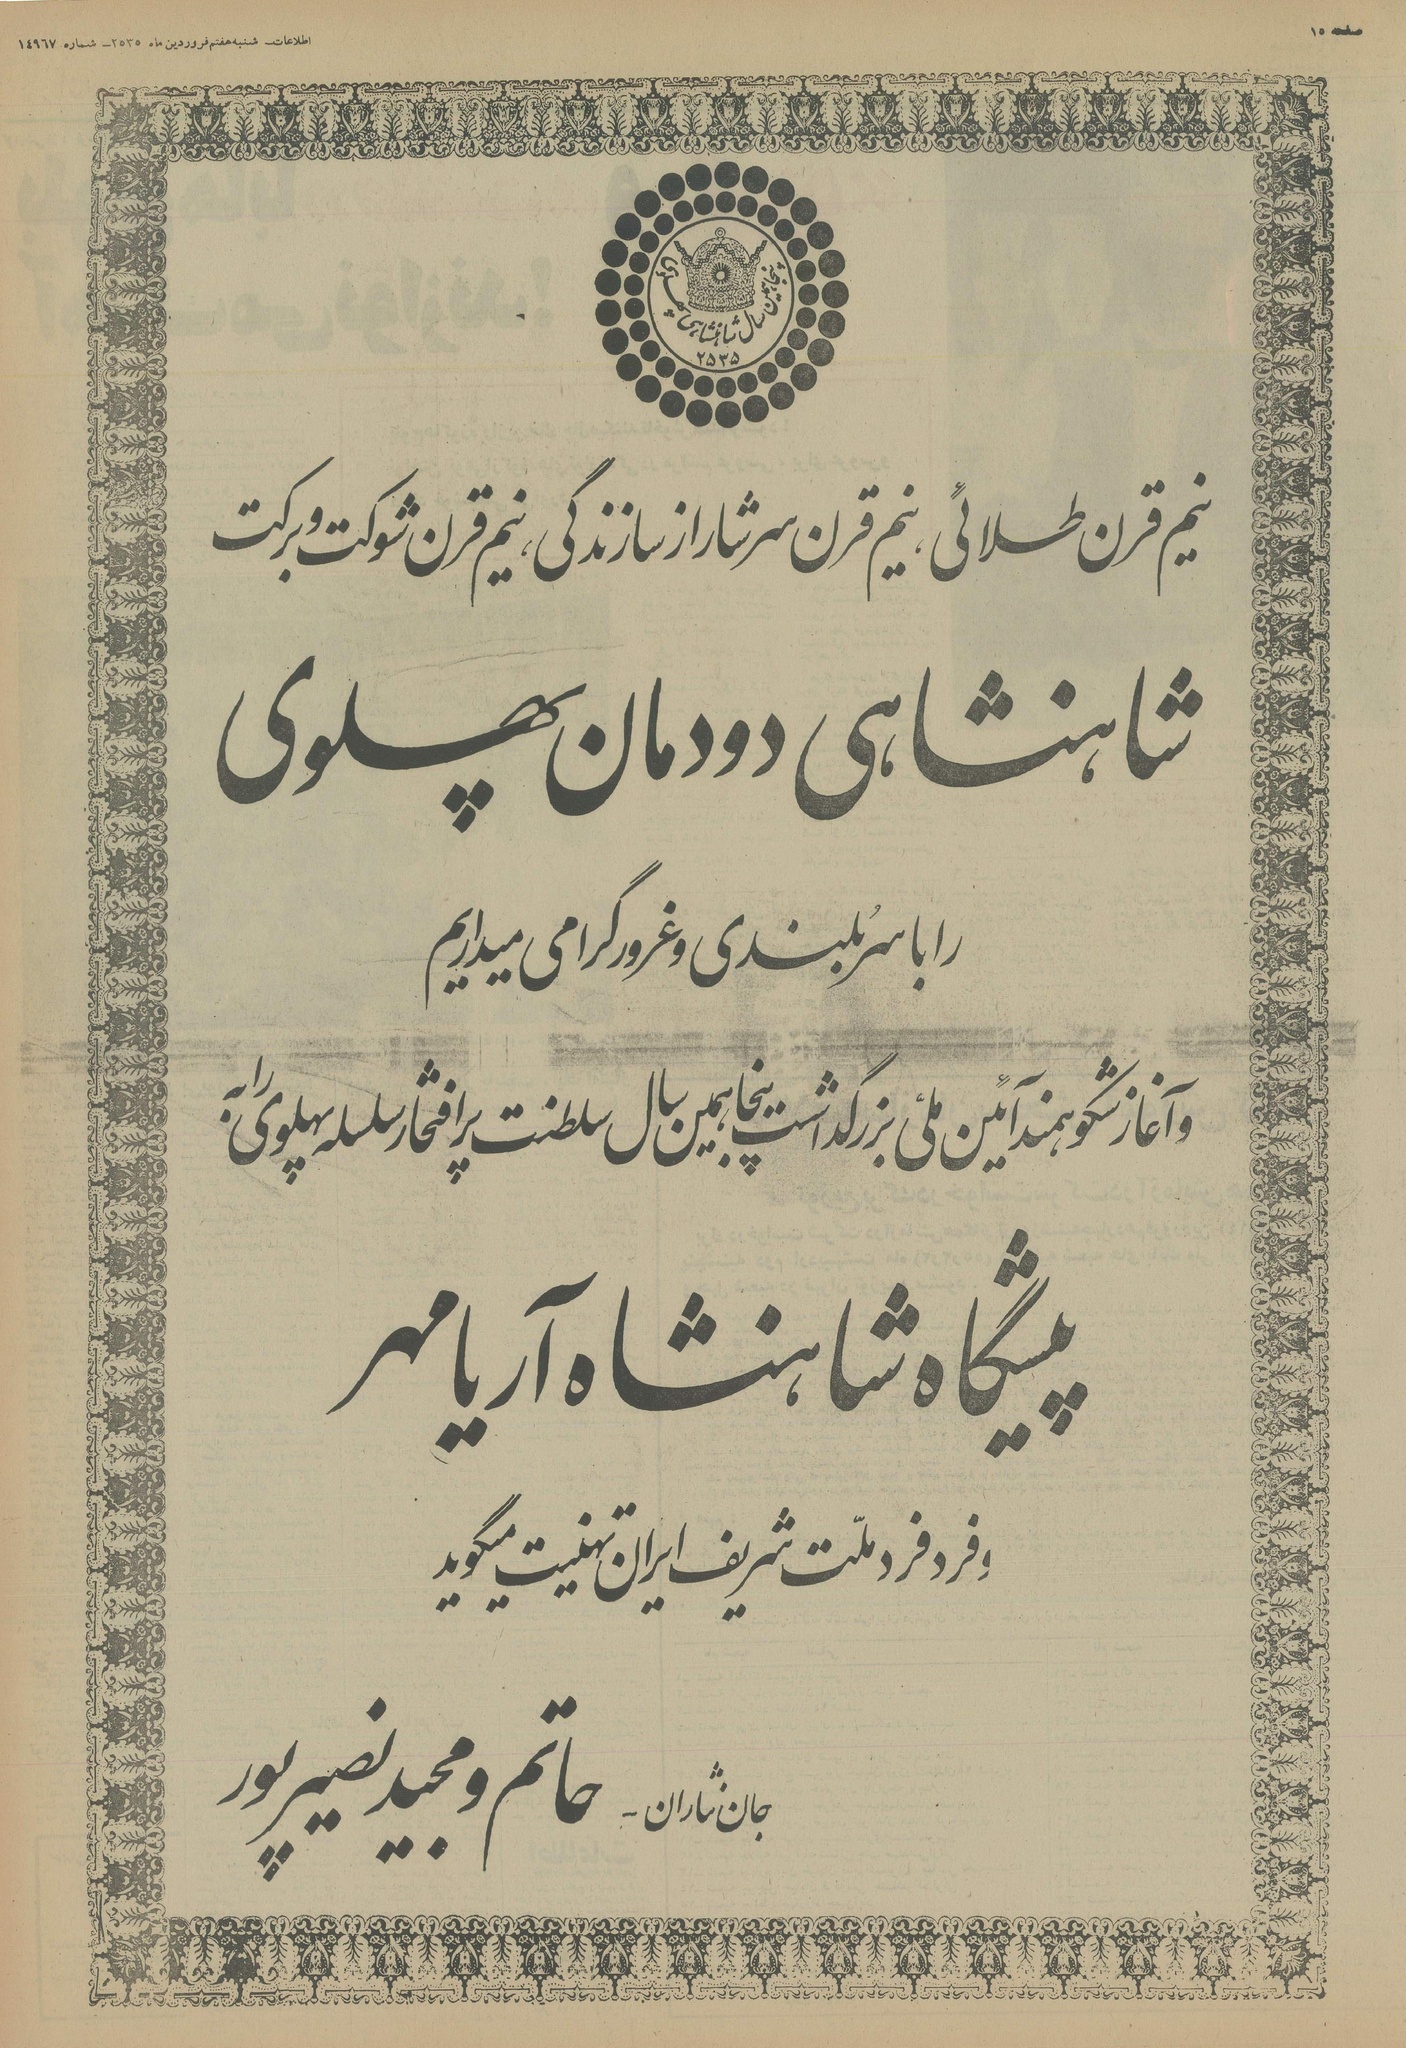 صفحه ۱۵
اطلاعات ـ شنبه هفتم فروردین ماه ۲۵۳۵ ـ شماره ۱٤۹٦۷
پنجاهمین سال شاهنشاهی پهلوی
۲۵۳۵
نیم قرن طلائی، نیم قرن سرشار از سازندگی، نیم قرن شوکت و برکت
شاهنشاهی دودمان پهلوی
را با سربُلندی و غرور گرامی میداریم
و آغاز شکوهمند آئین ملّی بزرگداشت پنجاهمین سال سلطنت پرافتخار سلسله پهلوی را به
پیشگاه شاهنشاه آریامهر
و فرد فرد ملّت شریف ایران تهنیت میگوید
جان نثاران - حاتم و مجید نصیرپور